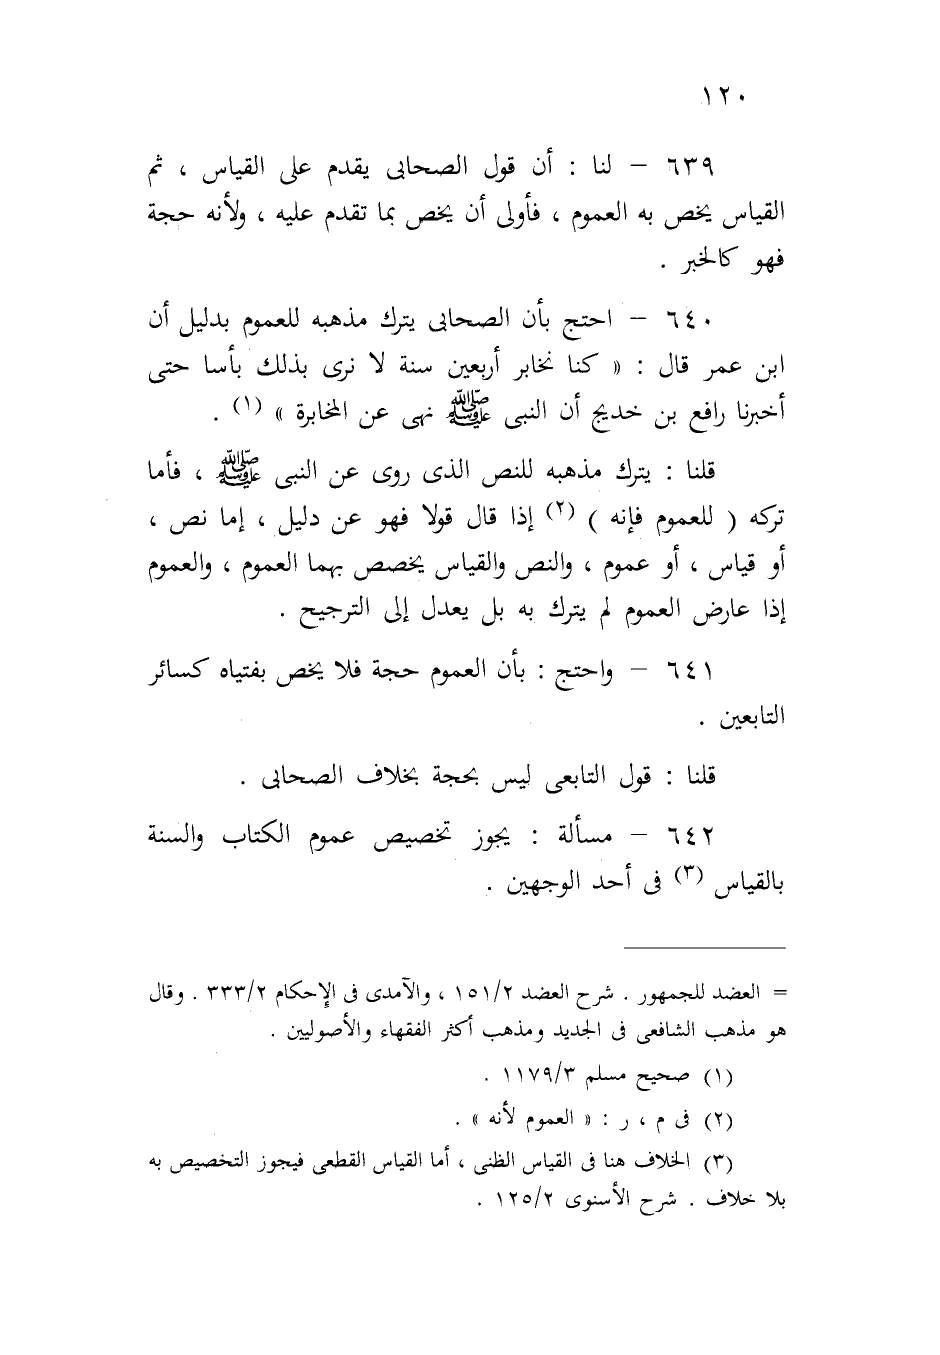 ١٢٠
٦٣٩ – لنا : أن قول الصحابى يقدم على القياس ، ثم
القياس يخص به العموم ، فأولى أن يخص بما تقدم عليه ، ولأنه حجة
فهو كالخبر .
٦٤٠ – احتج بأن الصحابى يترك مذهبه للعموم بدليل أن
ابن عمر قال : « كنا نخابر أربعين سنة لا نرى بذلك بأسا حتى
أخبرنا رافع بن خديج أن النبى ﷺ نهى عن المخابرة » (١) .
قلنا : يترك مذهبه للنص الذى روى عن النبى ﷺ ، فأما
تركه ( للعموم فإنه ) (٢) إذا قال قولا فهو عن دليل ، إما نص ،
أو قياس ، أو عموم ، والنص والقياس يخصص بهما العموم ، والعموم
إذا عارض العموم لم يترك به بل يعدل إلى الترجيح .
٦٤١ – واحتج : بأن العموم حجة فلا يخص بفتياه كسائر
التابعين .
قلنا : قول التابعى ليس بحجة بخلاف الصحابى .
٦٤٢ – مسألة : يجوز تخصيص عموم الكتاب والسنة
بالقياس (٣) فى أحد الوجهين .
= العضد للجمهور . شرح العضد ١٥١/٢ ، والآمدى فى الإحكام ٣٣٣/٢ . وقال
هو مذهب الشافعى فى الجديد ومذهب أكثر الفقهاء والأصوليين .
(١) صحيح مسلم ١١٧٩/٣ .
(٢) فى م ، ر : « العموم لأنه » .
(٣) الخلاف هنا فى القياس الظنى ، أما القياس القطعى فيجوز التخصيص به
بلا خلاف . شرح الأسنوى ١٢٥/٢ .